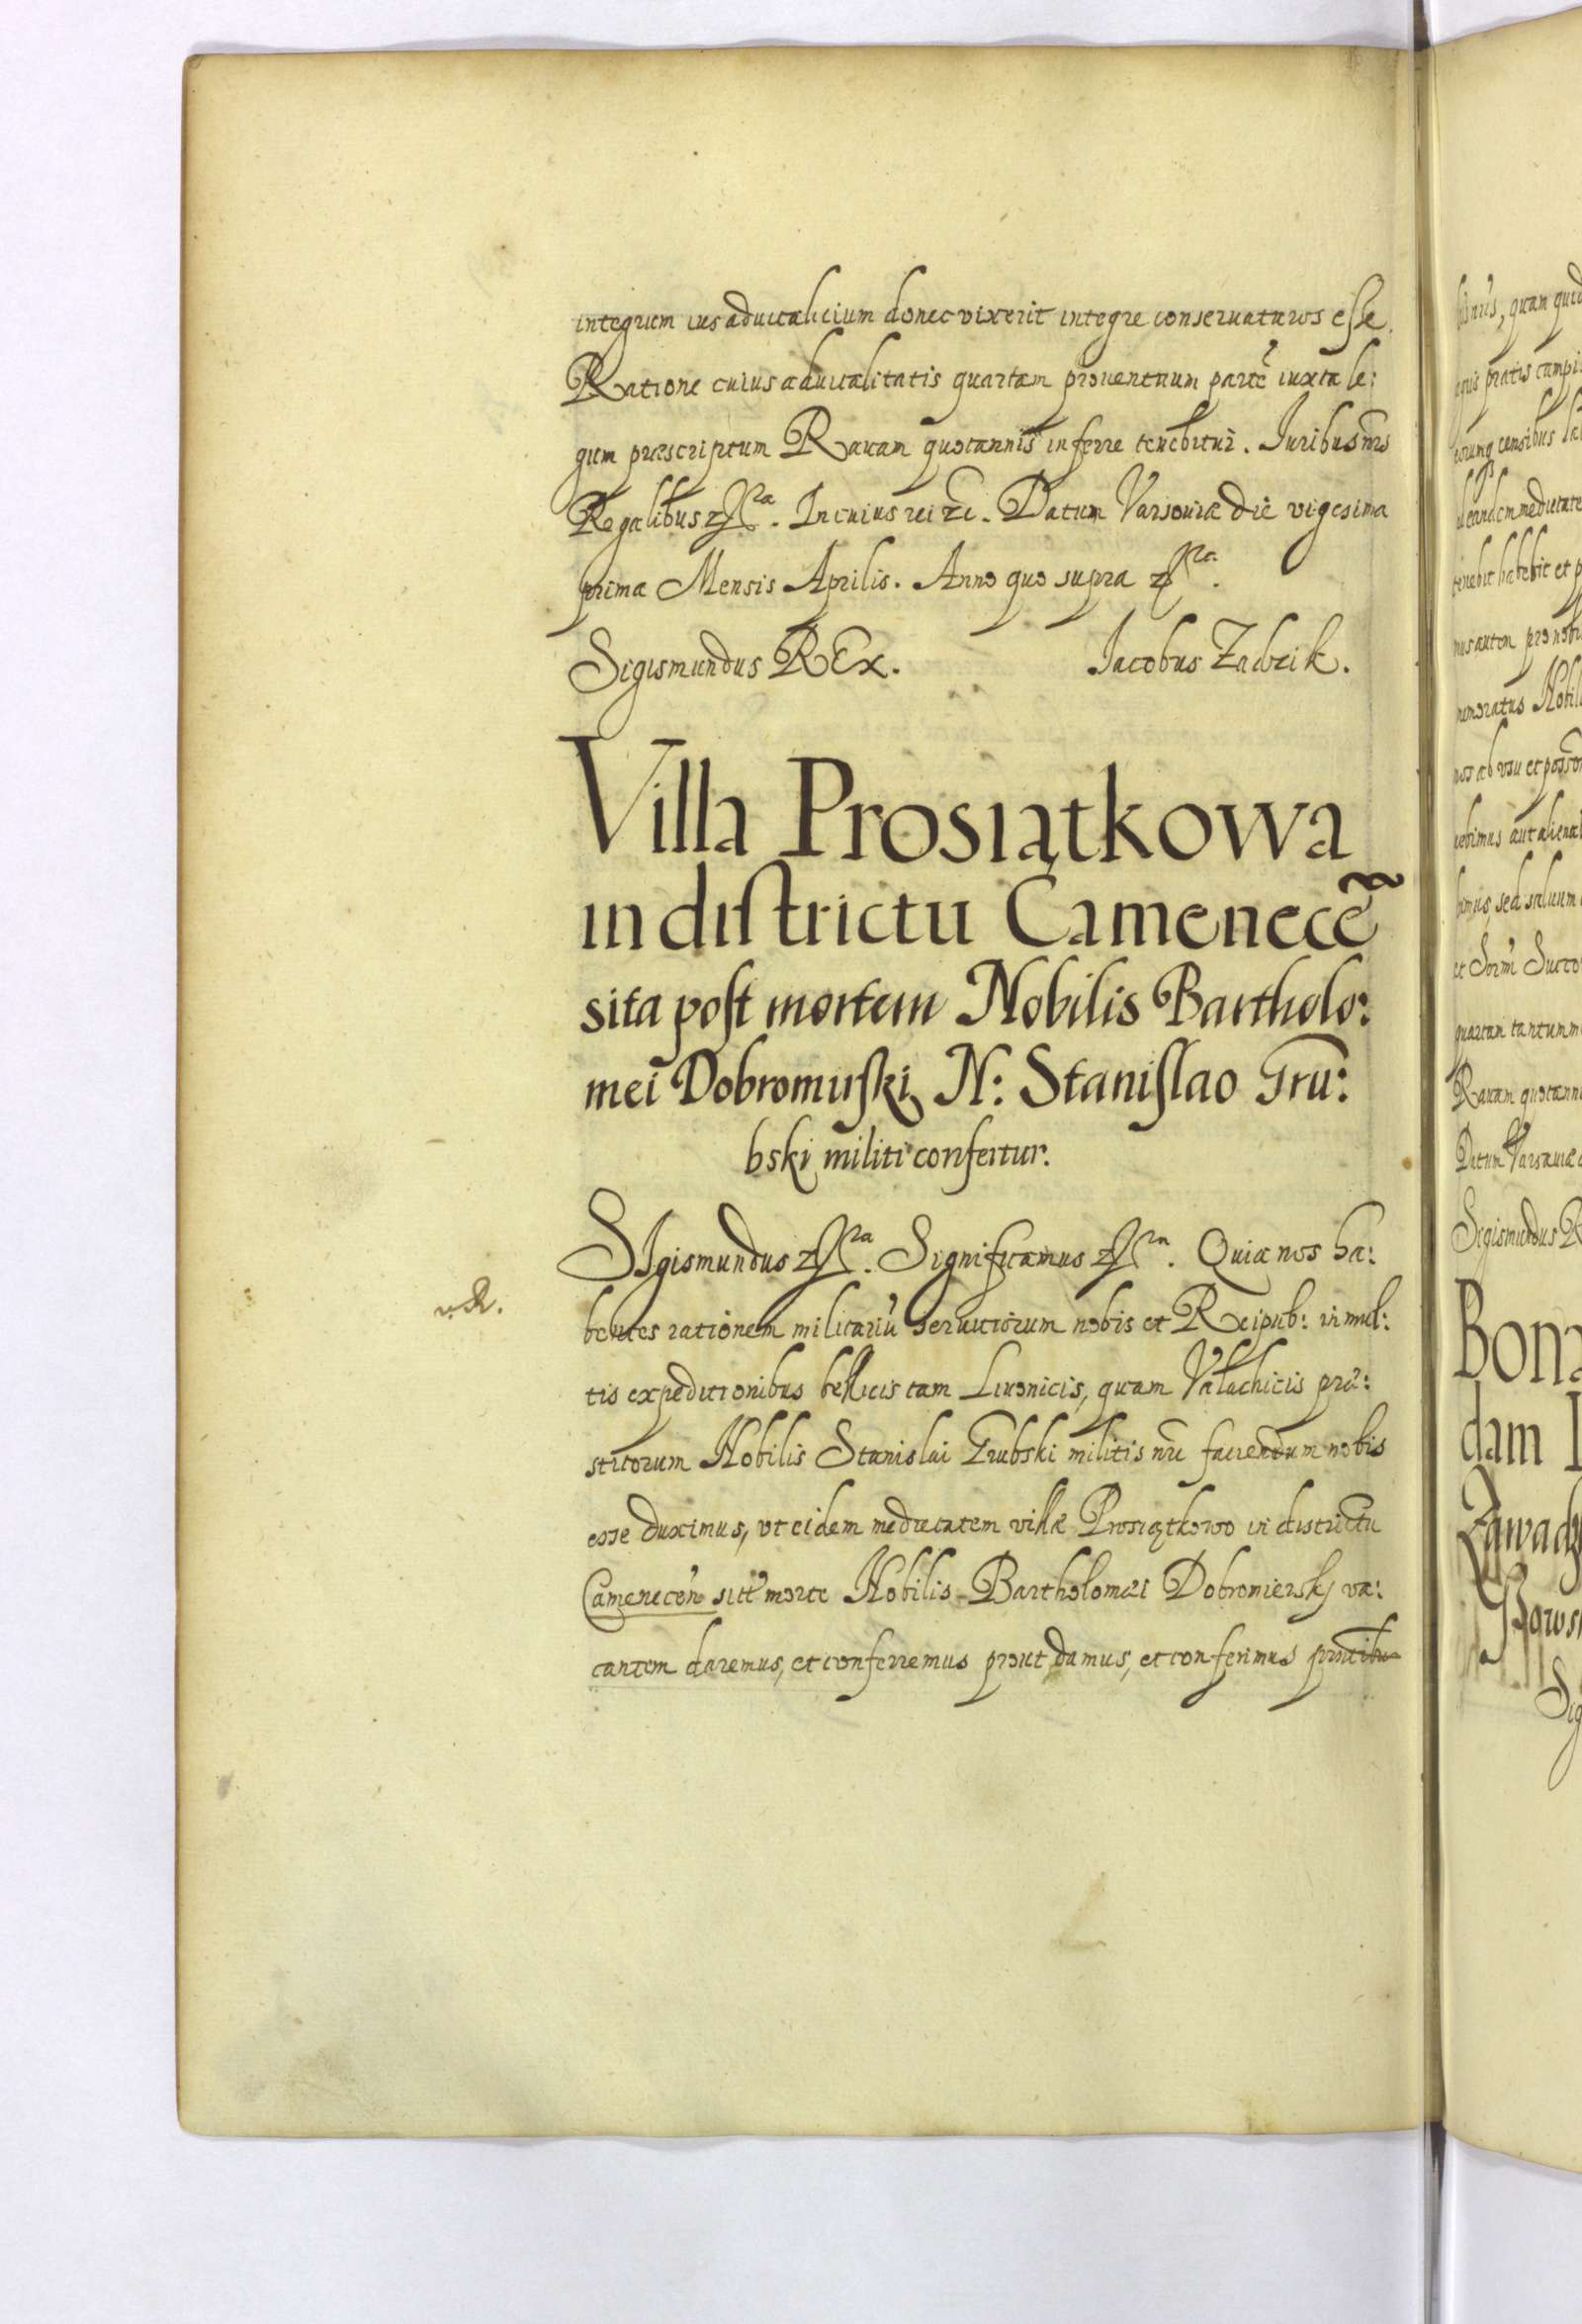 integrum ius aduitalicium donec vixerit integre conseruaturos esse.
Ratione cuius aduitalitatis quartam prouentuum parte iuxta le:
gum præscriptum Rauam quotannis inferre tenebitur. Iuribus nris
Regalibus. In cuius rei. Datum Varsouiæ die vigesima
prima Mensis Aprilis. Anno quo supra
Sigismundus REx. Iacobus Zadzik.
Villa Prosiątkowa
in districtu Camenecẽ
sita post mortem Nobilis Bartholo:
mei Dobromirski N: Stanislao Gru:
bski militi confertur.
SIgismundus. Significamus. Quia nos ha:
bentes rationem militariu seruitiorum nobis et Reipub: in mul:
tis expeditionibus bellicis tam Liuonicis, quam Valachicis præ:
stitorum Nobilis Stanislai Grubski militis nri faciendum nobis
esse duximus, vt eidem medietatem villæ Prosiątkowo in districtu
Camenecen sitæ morte Nobilis Bartholomæi Dobromierskj va:
cantem daremus, et conferremus prout damus, et conferimus
his nris, quam quid
pratis campis
censibus
eandem medietate
tenebit habebit et p
autem pro nob
memoratus Nobil
nos ab vsu et
debimus aut aliena
bimus, sed saluum
et Serm Succo
quartam tantumm
Rauam quotanni
Datum Varsauiæ
Sigismundus R
Bona
dam I
Zawady
Sig